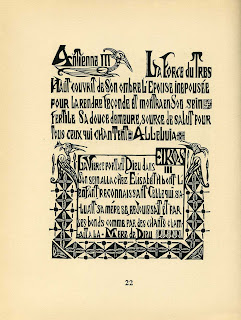 Antienna III La Force du Tres
Haut couvrit de Son ombre l'Epouse inepousée
pour la rendre feconde et montra en Son sein
fertile Sa douce demeure, source de salut pour
tous ceux qui chantent: Alleluvia
EIKOS
III
La Vierge portant Dieu dans
Son sein alla chez Elisabeth dont l
enfant reconnaissant Celle qui sa
luait sa mère se rejouissait et par
des bonds comme par des chants clam
ait a la Mere de Dieu
22